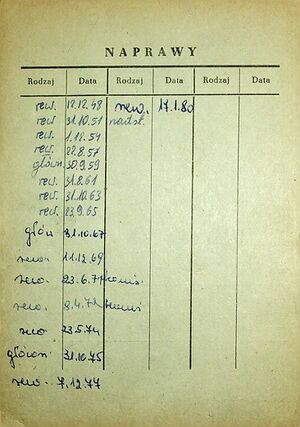 NAPRAWY
Rodzaj Data Rodzaj Data Rodzaj Data
rew. 12.12.48 rew. 17.1.80
rew. 31.10.51 nadst.
rew. 1.12.54
rew. 22.8.57
główn. 30.9.59
rew. 31.8.61
rew. 31.10.63
rew. 23.9.65
głón 31.10.67
rew. 11.12.69
rew. 23.6.71
rew. 8.4.72
rew 23.5.74
główn. 31.10.75
rew. 7.12.77